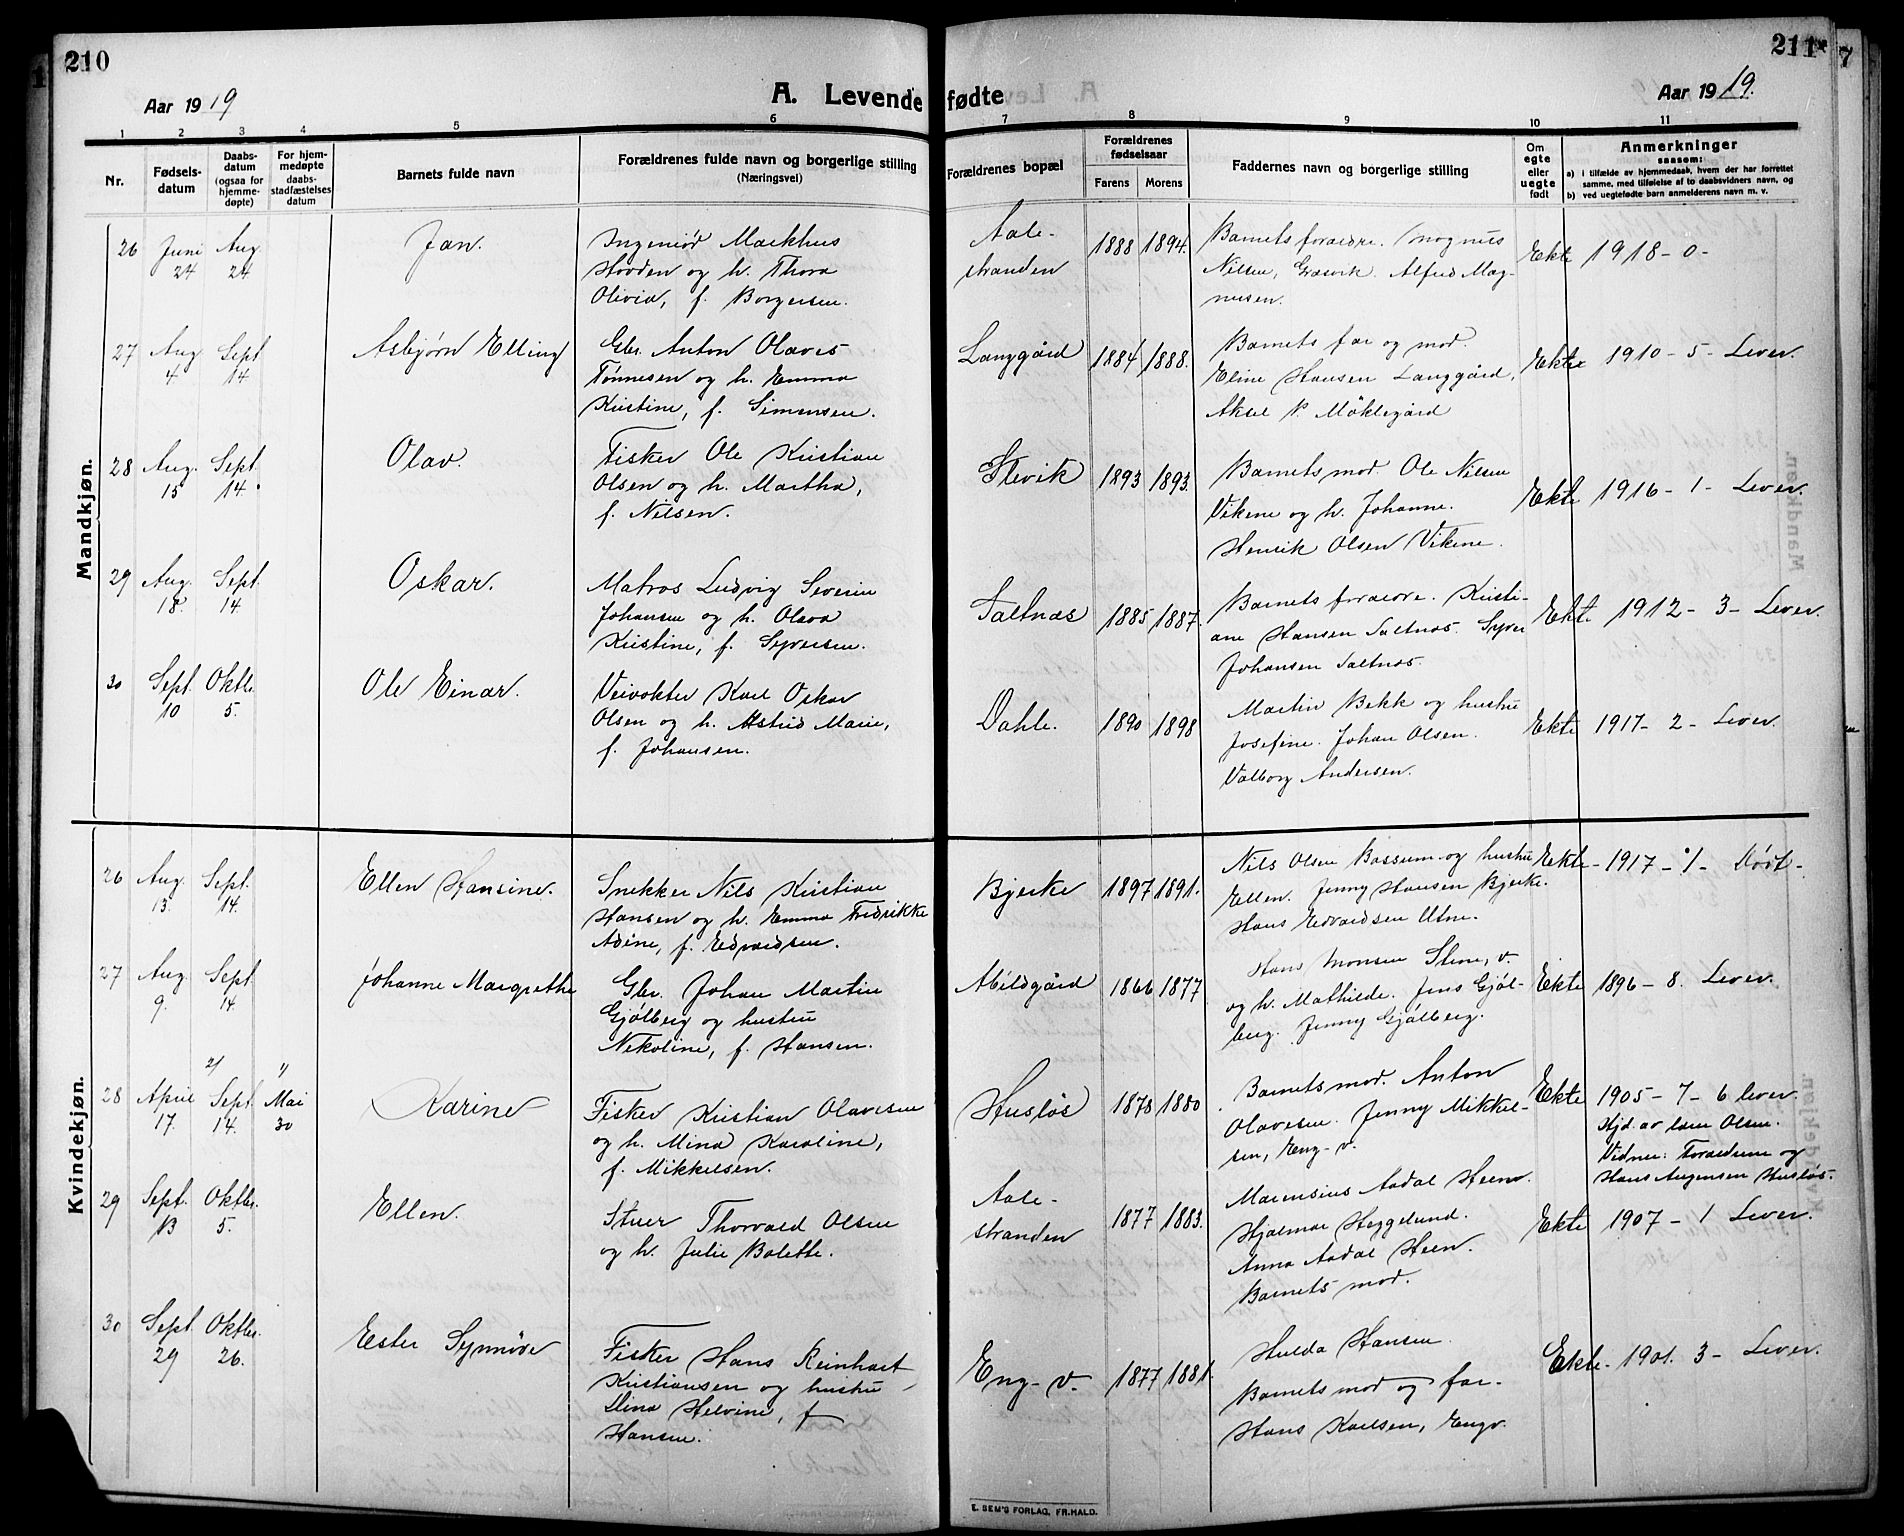 210
Aar 1919
A. Levende fødte
211
Aar 1919.
1 2 3 4 5 6 7 8 9 10 11
Nr.
Fødsels-
datum
Daabs-
datum
(ogsaa for
hjemme-
døpte)
For hjem-
medøpte
daabs-
stadfæstelses
datum
Barnets fulde navn
Forældrenes fulde navn og borgerlige stilling
(Næringsvei)
Forældrenes bopæl
Forældrenes
fødselsaar
Farens Morens
Faddernes navn og borgerlige stilling
Om
egte
eller
uegte
født
Anmerkninger
saasom:
a) i tilfælde av hjemmedaab, hvem der har forrettet
samme, med tilføielse af to daabsvidners navn, og
b) ved uegtefødte barn anmelderens navn m. v.
Mandkjøn.
26 Juni 24 Aug. 24
Jan.
Ingeniør Markhus
Hovden og h. Thora
Olivia, f. Borgersen.
Aale-
stranden
1888 1894.
Barnets foraldre. Magnus
Nilsen, Græsvik. Alfred Mag-
nusen.
Ekte 1918 - 0 -
27 Aug 4 Sept 14
Asbjørn Elling
Gbr. Anton Olaves
Tønnesen og h. Emma
Kristine, f. Simensen.
Langgård
1884 1888.
Barnets far og mod.
Eline Hansen Langgård,
Aksel P. Møklegård
Ekte 1910 - 5 - Lever.
28 Aug. 15 Sept. 14.
Olav.
Fisker Ole Kristian
Olsen og h. Martha,
f. Nilsen.
Slevik
1893 1893.
Barnets mod. Ole Nilsen
Vikene og h. Johanne.
Henrik Olsen Vikene.
Ekte 1916 - 1 - Lever.
29 Aug. 18. Sept. 14
Oskar.
Matros Ludvig Severin
Johansen og h. Olava
Kristine, f. Syversen.
Saltnæs
1885 1887.
Barnets foraldre. Kristi-
ane Hansen Saltnæs. Syver
Johansen Saltnæs.
Ekte 1912 - 3 - Lever.
30 Sept. 10 Oktbr. 5.
Ole Einar.
Veivokter Karl Oskar
Olsen og h. Astrid Marie,
f. Johansen.
Dahle.
1890 1898
Martin Bekk og hustru
Josefine. Johan Olsen.
Valborg Andersen.
Ekte 1917 - 2 - Lever.
Kvindekjøn.
26 Aug. 13. Sept. 14.
Ellen Hansine.
Snekker Nils Kristian
Hansen og h. Emma Fredrikke
Adine, f. Edvardsen.
Bjerke
1897 1891.
Nils Olsen Bossum og hustru
Ellen. Jenny Hansen Bjerke.
Hans Edvardsen Utne.
Ekte - 1917 - 1 - Død -
27 Aug. 9. Sept. 14.
Johanne Margrethe
Gbr. Johan Martin
Gjølberg og hustru
Nikoline, f. Hansen.
Mildgård
1866 1877
Hans Monsen Stene, v.
og h. Mathilde. Jens Gjøl-
berg. Jenny Gjølberg.
Ekte 1896 - 8. Lever.
28 April 17. 2/ Sept. 14. 1/ Mai 30
Karine
Fisker Kristian Olavesen
og h. Mina Karoline,
f. Mikkelsen.
Husløs
1878 1880
Barnets mod. Anton
Olavesen. Jenny Mikkel-
sen, Eng-v.
Ekte 1905 - 7 - 6 lever.
Hjd. av lære Olsen.
Vidner: Forældrene og
Hans Augensen Husløs.
29 Sept. 13 Oktbr. 5.
Ellen.
Stuer Thorvald Olsen
og h. Julie Bolette.
Aale-
stranden
1877 1883.
Marensius Aadal Heen.
Hjalmar Heggelund.
Anna Aadal Heen.
Barnets mod.
Ekte 1907 - 1 Lever.
30 Sept. 29 Oktbr. 26.
Ester Synnøve
Fisker Hans Reinhart
Kristiansen og hustru
Elina Helvine, f
Hansen.
Eng-v.
1877 1881.
Hulda Hansen.
Barnets mod og far.
Hans Karlsen, Engv.
Ekte - 1901. 3 - Lever.
E. SEM'S FORLAG, FR.HALD.
7